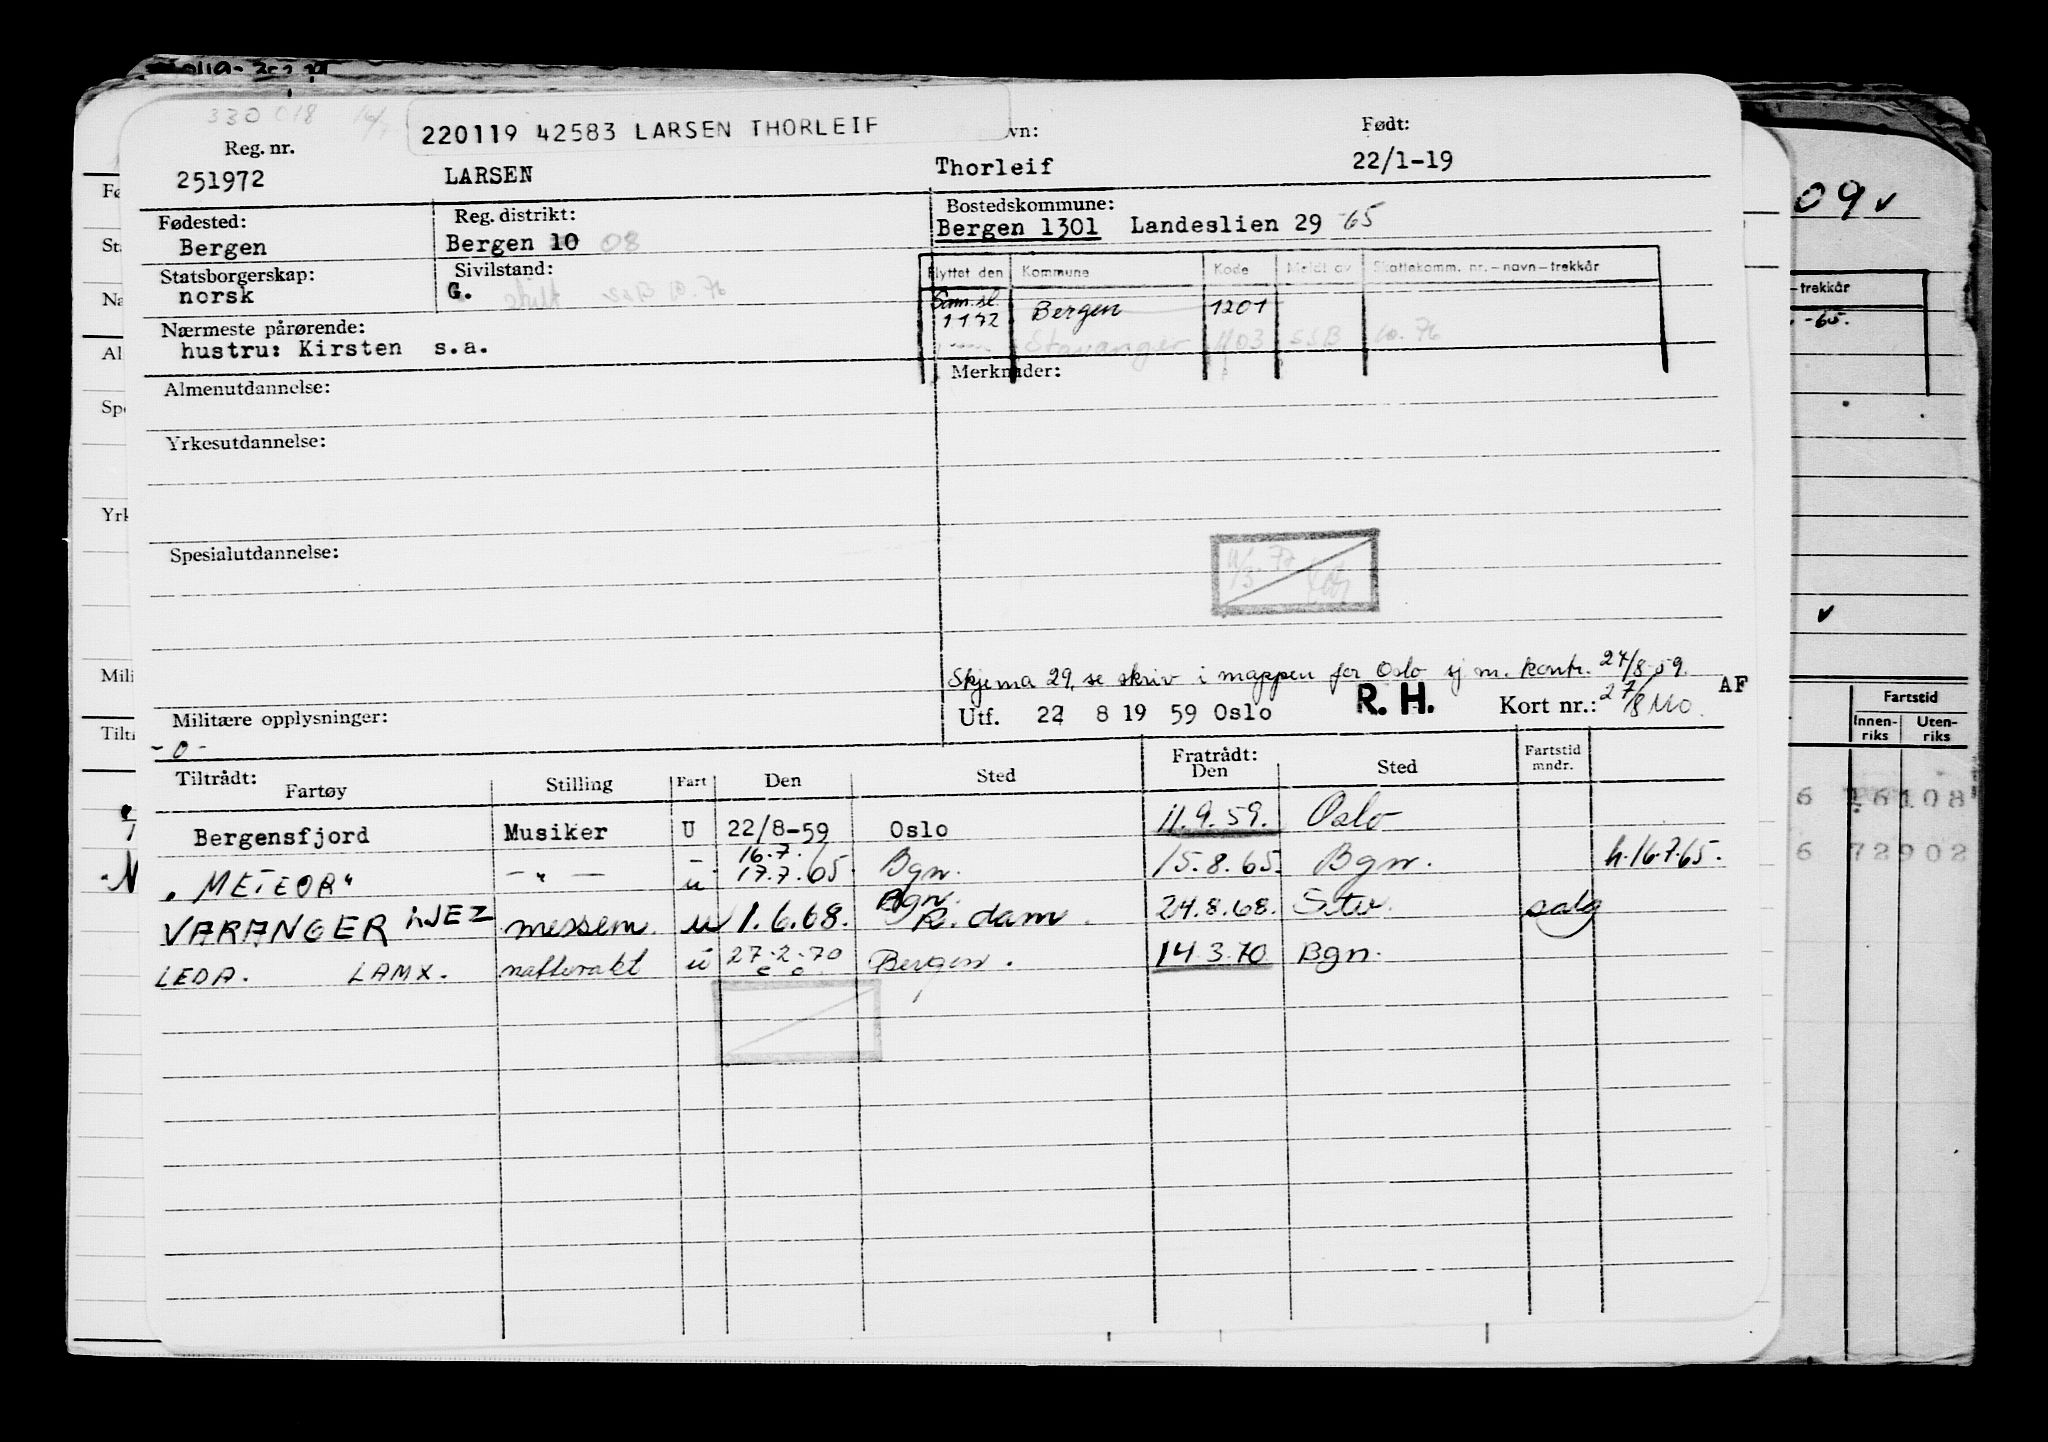 330 018
220119 42583 LARSEN THORLEIF
Reg. nr. vn: Født:
251972 LARSEN Thorleif 22/1-19
Fødested: Reg. distrikt: Bostedskommune:
Bergen Bergen 10 08 Bergen 1301 Landeslien 29 -65
Statsborgerskap: Sivilstand: Flyttet den Kommune Kode Meldt av Skattekomm. nr.-navn-trekkår
norsk G. skilt SSB 10.76
Sam.sl. 1 1 72 Bergen 1201
Stavanger 1103 SSB 10.76
Nærmeste pårørende:
hustru: Kirsten s.a.
Almenutdannelse: Merknader:
Yrkesutdannelse:
Spesialutdannelse:
Skjema 29, se skriv i mappen for Oslo sj m. kontr. 24/8-59.
Militære opplysninger: Utf. 22 8 19 59 Oslo R. H. Kort nr.: 27/8 MO AF
-0-
Tiltrådt: Fratrådt: Fartstid mndr.
Fartøy Stilling Fart Den Sted Den Sted
Bergensfjord Musiker U 22/8-59 Oslo 11.9.59. Oslo
"METEOR" — " — u 16.7. 17.7.65 Bgn. 15.8.65. Bgn. h.16.7.65.
VARANGER LJEZ messem. u 1.6.68. Bgn. R.dam. 24.8.68. salg
LEDA. LAMX. u 27.2.70 Bergen. 14.3.70 Bgn.
09 v
-trekkår
-65.
Fartstid
Innen-riks Uten-riks
6 16108
6 72902